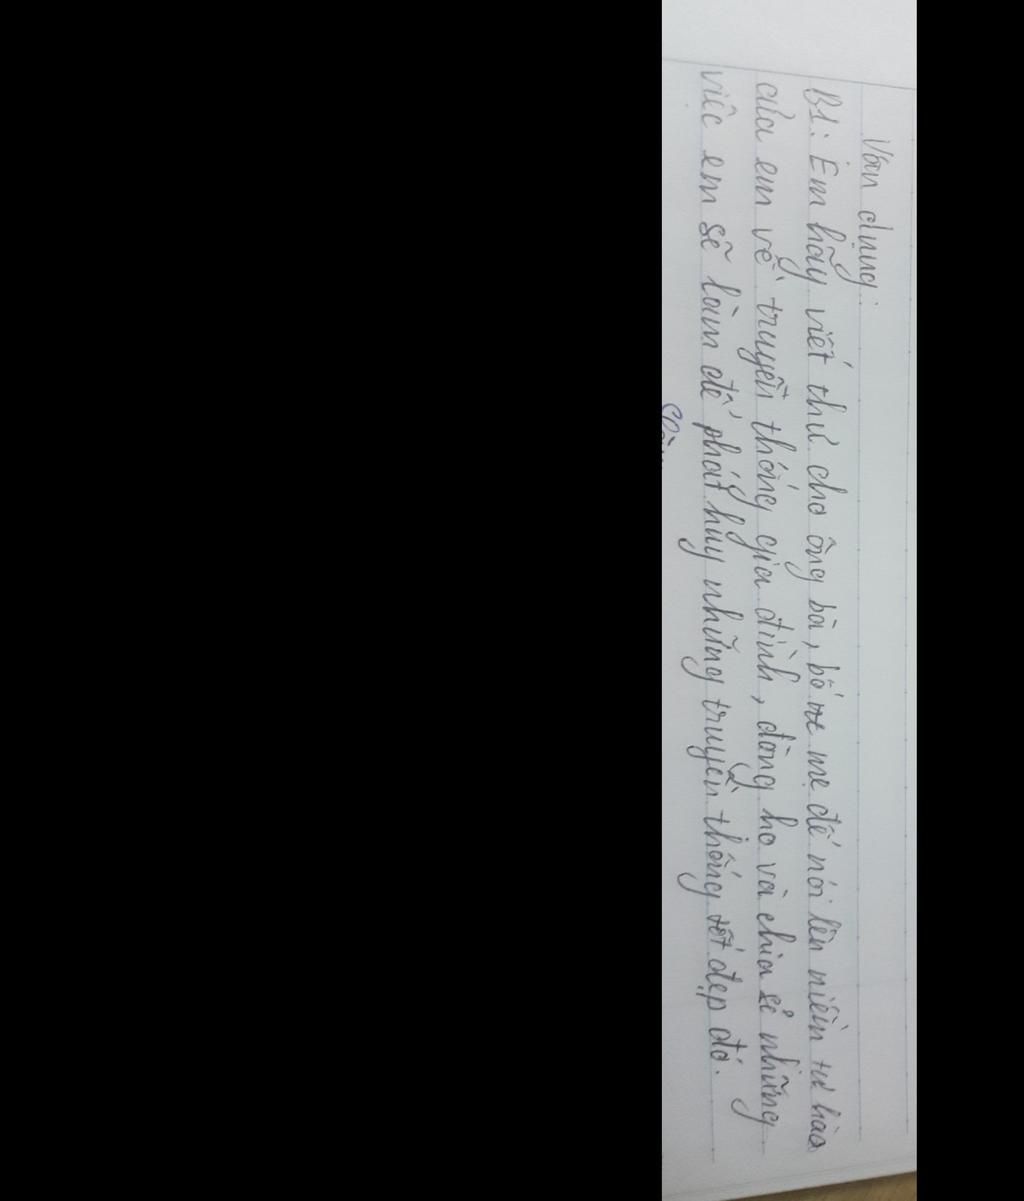 Vận dụng:
B1: Em hãy viết thư cho ông bà, bố mẹ để nói lên niềm tự hào
của em về truyền thống gia đình, dòng họ và chia sẻ những
việc em sẽ làm để phát huy những truyền thống tốt đẹp đó.